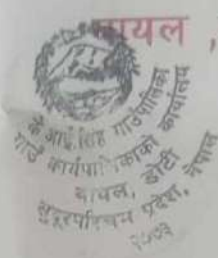 वायल ,
के.आई.सिंह गाउँपालिका
गाउँ कार्यपालिकाको कार्यालय
वायल, डोटी
सुदूरपश्चिम प्रदेश, नेपाल
२०७३